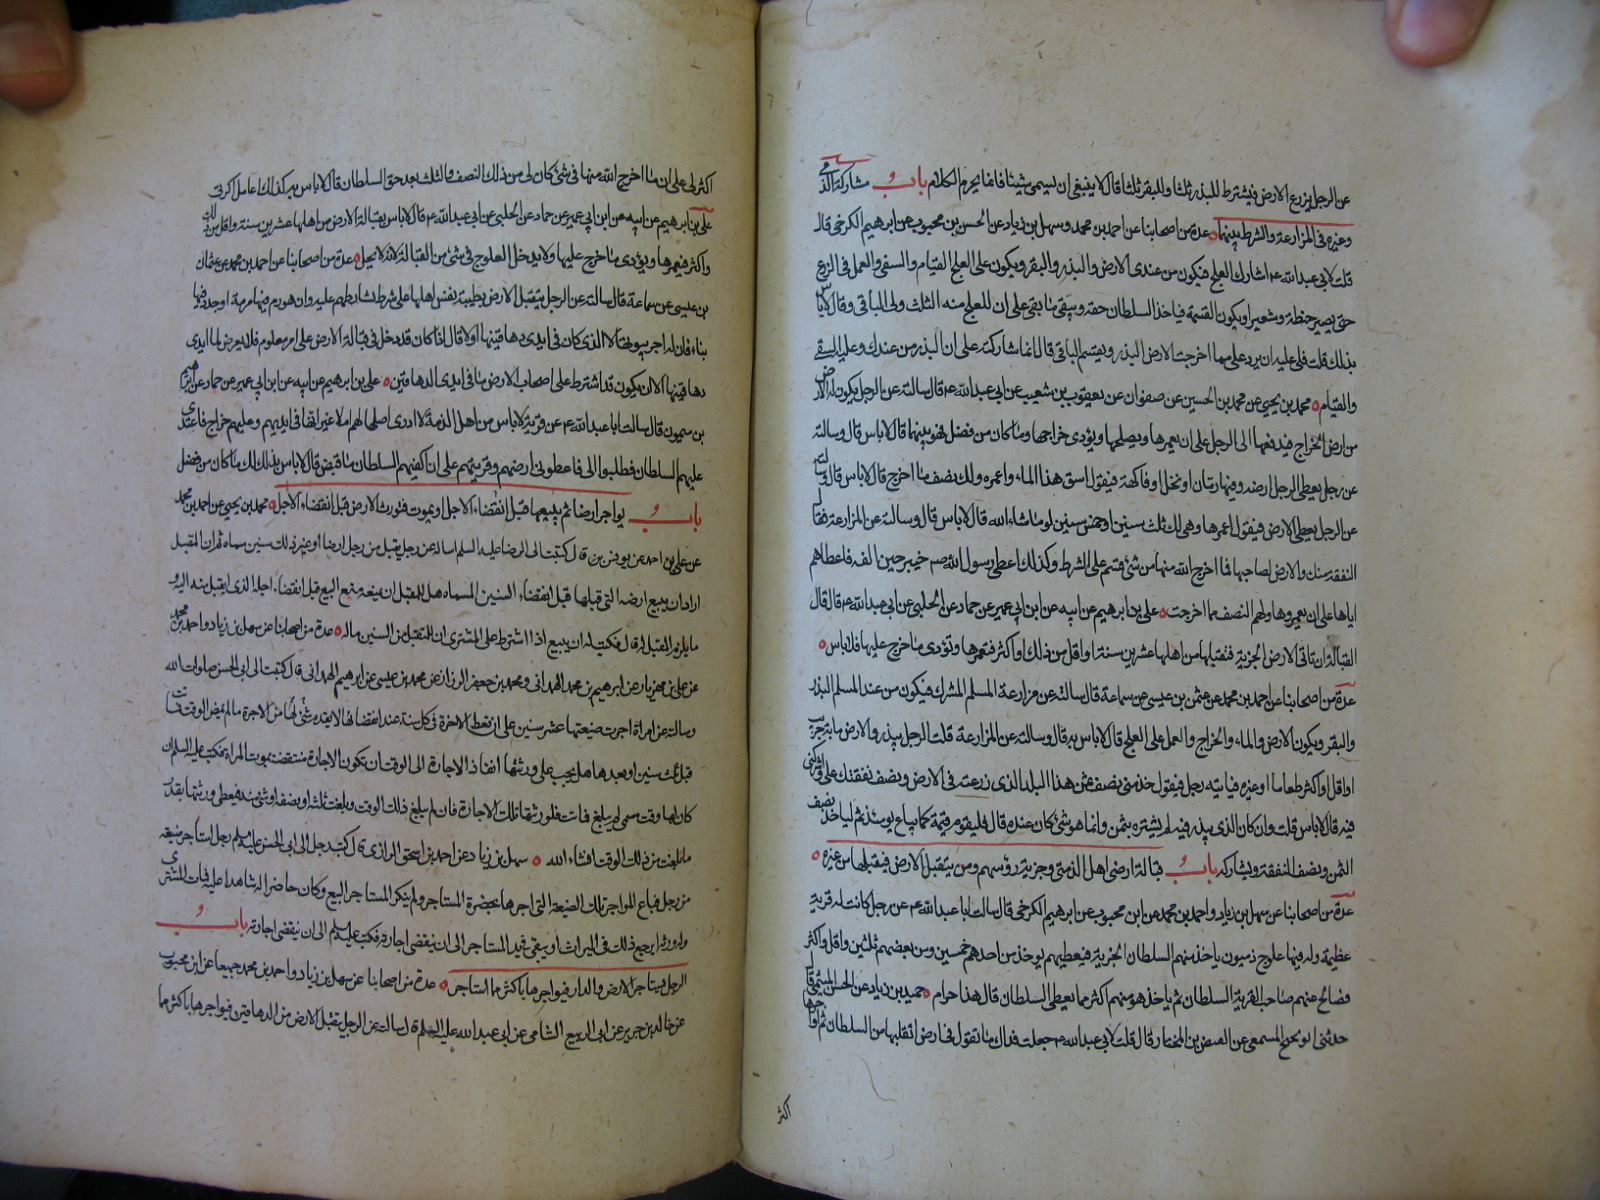 عن الرجل يزرع الارض فيشترط للبذر ثلثا وللبقر ثلثا قال لا ينبغي ان يسمي شيئا فانما يحرم الكلام باب مشاركة الذمي
وغيره في المزارعة والشرط بينهما عدة من اصحابنا عن احمد بن محمد وسهل بن زياد عن الحسن بن محبوب عن ابرهيم الكرخي قال
قلت لابي عبد الله ع اشارك العلج فيكون من عندي الارض والبذر والبقر ويكون على العلج القيام والسقي والعمل في الزرع
حتى يصير حنطة وشعيرا ويكون القسمة فياخذ السلطان حقه ويبقى ما بقي على ان للعلج منه الثلث ولي الباقي وقال لا باس
بذلك قلت فلي عليه ان يرد علي مما اخرجت الارض البذر ويقسم الباقي قال انما شاركته على ان البذر من عندك وعليه السقي
والقيام محمد بن يحيى عن محمد بن الحسين عن صفوان عن يعقوب بن شعيب عن ابي عبد الله ع قال سالته عن الرجل يكون له الارض
من ارض الخراج فيدفعها الى الرجل على ان يعمرها ويصلحها ويؤدي خراجها وما كان من فضل فهو بينهما قال لا باس قال وسالته
عن رجل يعطي الرجل ارضه وفيها رمان او نخل او فاكهة فيقول اسق هذا الماء واعمره ولك نصف ما اخرج قال لا باس قال وسالته
عن الرجل يعطي الارض فيقول اعمرها وهي لك ثلث سنين او خمس سنين او ما شاء الله قال لا باس قال وسالته عن المزارعة فقال
النفقة منك والارض لصاحبها فما اخرج الله منها من شيء قسم على الشرط وكذلك اعطى رسول الله ص خيبر حين اتوه فاعطاهم
اياها على ان يعمروها ولهم النصف مما اخرجت علي بن ابرهيم عن ابيه عن ابن ابي عمير عن حماد عن الحلبي عن ابي عبد الله ع قال قال
القبالة ان تاتي الارض الخربة فتقبلها من اهلها عشرين سنة او اقل من ذلك او اكثر فتعمرها وتؤدي ما خرج عليها فلا باس
عدة من اصحابنا عن احمد بن محمد عن عثمن بن عيسى عن سماعة قال سالته عن مزارعة المسلم المشرك فيكون من عند المسلم البذر
والبقر ويكون الارض والماء والخراج والعمل على العلج قال لا باس به قال وسالته عن المزارعة قلت الرجل يبذر في الارض مائة جريب
او اقل او اكثر طعاما او غيره فياتيه رجل فيقول خذ مني نصف ثمن هذا البذر الذي زرعته في الارض ونصف نفقتك علي واشركني
فيه قال لا باس قلت وان كان الذي يبذر فيه لم يشتره بثمن وانما هو شيء كان عنده قال فليقومه قيمة كما يباع يومئذ ثم لياخذ نصف
الثمن ونصف النفقة ويشاركه باب قبالة ارضي اهل الذمة وجزية رؤسهم ومن يتقبل الارض فيقبلها من غيره
عدة من اصحابنا عن سهل بن زياد واحمد بن محمد عن ابن محبوب عن ابرهيم الكرخي قال سالت ابا عبد الله ع عن رجل كانت له قرية
عظيمة وله فيها علوج ذميون ياخذ منهم السلطان الجزية فيعطيهم يوخذ من احدهم خمسين ومن بعضهم ثلثين واقل واكثر
فصالح عنهم صاحب القرية السلطان ثم ياخذ هو منهم اكثر مما يعطي السلطان قال هذا حرام حميد بن زياد عن الحسن
حدثني ابو نجيح المسمعي عن الفيض بن المختار قال قلت لابي عبد الله ع جعلت فداك ما تقول في ارض اتقبلها من السلطان ثم اواجرها
اكثر
اكثر لي على ان ما اخرج الله منها في شيء كان لي من ذلك النصف والثلث بعد حق السلطان قال لا باس به كذلك اعامل اكرتي
علي بن ابرهيم عن ابيه عن ابن ابي عمير عن حماد عن الحلبي عن ابي عبد الله ع قال لا باس بقبالة الارض من اهلها عشرين سنة واقل من ذلك
واكثر فيعمرها ويؤدي ما خرج عليها ولا يدخل العلوج في شيء من القبالة لانه لا يحل عدة من اصحابنا عن احمد بن محمد عن عثمان
بن عيسى عن سماعة قال سالته عن الرجل يتقبل الارض بطيبة نفس اهلها على شرط يشارطهم عليه وان هو رم فيها مرمة او جدد فيها
بناء فان له اجر بيوتها الا الذي كان في ايدي دهاقينها اولا قال اذا كان قد دخل في قبالة الارض على امر معلوم فلا يعرض لما في ايدي
دهاقينها الا ان يكون قد اشترط على اصحاب الارض ما في ايدي الدهاقين علي بن ابرهيم عن ابيه عن ابن ابي عمير عن حماد عن ابرهيم
بن ميمون قال سالت ابا عبد الله ع عن قرية لاناس من اهل الذمة لا ادري اصلها لهم ام لا غير انها في ايديهم وعليهم خراج فاعتدى
عليهم السلطان فطلبوا الي فاعطوني ارضهم وقريتهم على ان اكفيهم السلطان ما قبض قال لا باس بذلك لك ما كان من فضل
باب يواجر ارضا ثم يبيعها قبل انقضاء الاجل او يموت فتورث الارض قبل انقضاء الاجل محمد بن يحيى عن احمد بن محمد
عن علي بن احمد عن يونس قال كتبت الى الرضا عليه السلم اساله عن رجل يقبل من رجل ارضا او غير ذلك سنين مسماه ثم ان المقبل
اراد ان يبيع ارضه التي قبلها قبل انقضاء السنين المسماه هل للمتقبل ان يمنعه من البيع قبل انقضاء اجله الذي يقبل منه اليه و
ما يلزم المتقبل له قال فكتب له ان يبيع اذا اشترط على المشتري ان للمتقبل من السنين ماله عدة من اصحابنا عن سهل بن زياد واحمد بن محمد
عن علي بن مهزيار عن ابرهيم بن محمد الهمداني ومحمد بن جعفر الرزاز عن محمد بن عيسى عن ابرهيم الهمداني قال كتبت الى ابي الحسن صلوات الله
وسالته عن امراة اجرت ضيعتها عشر سنين على ان تعطى الاجرة في كل سنة عند انقضائها لا يقدم شيء لها من الاجرة ما لم يمض الوقت فماتت
قبل ثلث سنين او بعدها هل يجب على ورثتها انفاذ الاجارة الى الوقت ام تكون الاجارة منتقضة بموت المراة فكتب عليه السلم ان
كان لها وقت مسمى لم يبلغ فماتت فلورثتها تلك الاجارة فان لم يبلغ ذلك الوقت وبلغت ثلثه او نصفه او شيء منه فيعطي ورثتها بقدر
ما بلغت من ذلك الوقت انشاء الله سهل بن زياد عن احمد بن اسحق الرازي قال كتب رجل الى ابي الحسن عليه السلم رجل استاجر ضيعة
من رجل فباع المواجر تلك الضيعة التي اجرها بحضرة المستاجر ولم ينكر المستاجر البيع وكان حاضرا له شاهدا عليه فمات المشتري
وله ورثة ايرجع ذلك في الميراث او يبقى في يد المستاجر الى ان ينقضي اجارته فكتب عليه السلم الى ان ينقضي اجارته باب
الرجل يستاجر الارض والدار فيواجرها باكثر مما استاجر عدة من اصحابنا عن سهل بن زياد واحمد بن محمد جميعا عن ابن محبوب
عن خالد بن جرير عن ابي الربيع الشامي عن ابي عبد الله عليه السلم قال سالته عن الرجل يتقبل الارض من الدهاقين فيواجرها باكثر مما